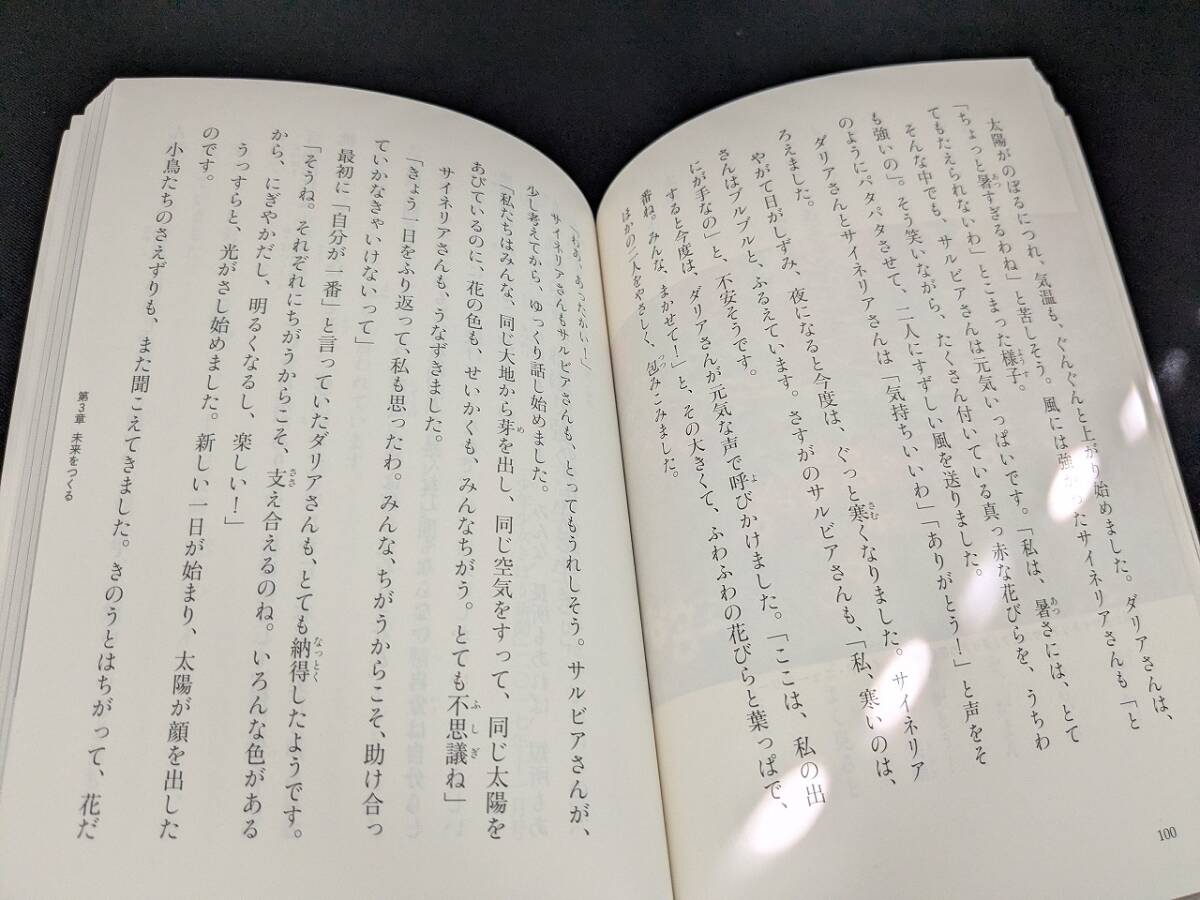 太陽がのぼるにつれ、気温も、ぐんぐんと上がり始めました。ダリアさんは、
「ちょっと暑すぎるわね」と苦しそう。風には強かったサイネリアさんも「と
てもたえられないわ」とこまった様子。
そんな中でも、サルビアさんは元気いっぱいです。「私は、暑さには、とて
も強いの」。そう笑いながら、たくさん付いている真っ赤な花びらを、うちわ
のようにパタパタさせて、二人にすずしい風を送りました。
ダリアさんとサイネリアさんは「気持ちいいわ」「ありがとう!」と声をそ
ろえました。
やがて日がしずみ、夜になると今度は、ぐっと寒くなりました。サイネリア
さんはブルブルと、ふるえています。さすがのサルビアさんも、「私、寒いのは、
にが手なの」と、不安そうです。
すると今度は、ダリアさんが元気な声で呼びかけました。「ここは、私の出
番ね。みんな、まかせて!」と、その大きくて、ふわふわの花びらと葉っぱで、
ほかの二人をやさしく、包みこみました。
100
「わあ、あったかい!」
サイネリアさんもサルビアさんも、とってもうれしそう。サルビアさんが、
少し考えてから、ゆっくり話し始めました。
「私たちはみんな、同じ大地から芽を出し、同じ空気をすって、同じ太陽を
あびているのに、花の色も、せいかくも、みんなちがう。とても不思議ね」
サイネリアさんも、うなずきました。
「きょう一日をふり返って、私も思ったわ。みんな、ちがうからこそ、助け合っ
ていかなきゃいけないって」
最初に「自分が一番」と言っていたダリアさんも、とても納得したようです。
「そうね。それぞれにちがうからこそ、支え合えるのね。いろんな色がある
から、にぎやかだし、明るくなるし、楽しい!」
うっすらと、光がさし始めました。新しい一日が始まり、太陽が顔を出した
のです。
小鳥たちのさえずりも、また聞こえてきました。きのうとはちがって、花だ
第3章 未来をつくる